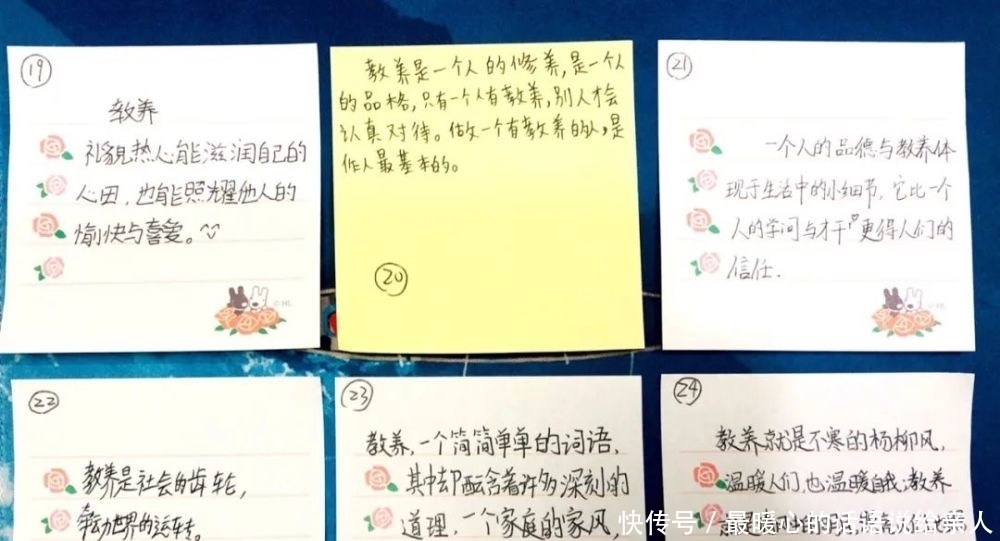 19
教养
礼貌热心能滋润自己的
心田，也能照耀他人的
愉快与喜爱。
© HL
20
教养是一个人的修养，是一个人
的品格，只有一个人有教养，别人才会
认真对待。做一个有教养的人，是
作人最基本的。
21
一个人的品德与教养体
现于生活中的小细节，它比一个
人的学问与才干更得人们的
信任.
22
教养是社会的齿轮，
牵动世界的运转。
23
教养，一个简简单单的词语，
其中却蕴含着许多深刻的
道理，一个家庭的家风，
24
教养就是不寒的杨柳风，
温暖人们，也温暖自我；教养
快传号 / 最暖心的话语说给亲人